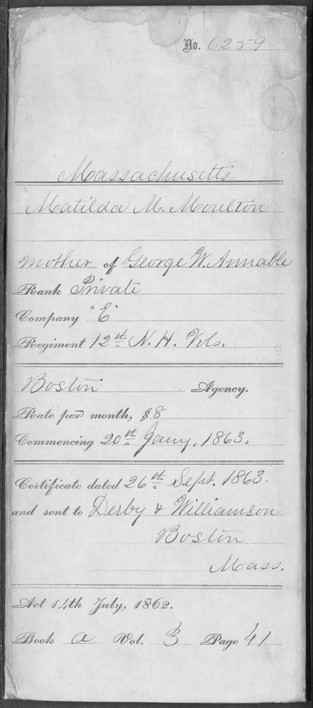 No. 6259
Massachusetts
Matilda M. Moulton
Mother of George W. Annable
Rank Private
Company "E"
Regiment 12th N. H. Vols.
Boston Agency.
Rate per month, $8
Commencing 20th Jany, 1863.
Certificate dated 26th Sept. 1863.
and sent to Derby & Williamson
Boston
Mass.
Act 14th July, 1862.
Book A Vol. 3 Page 41